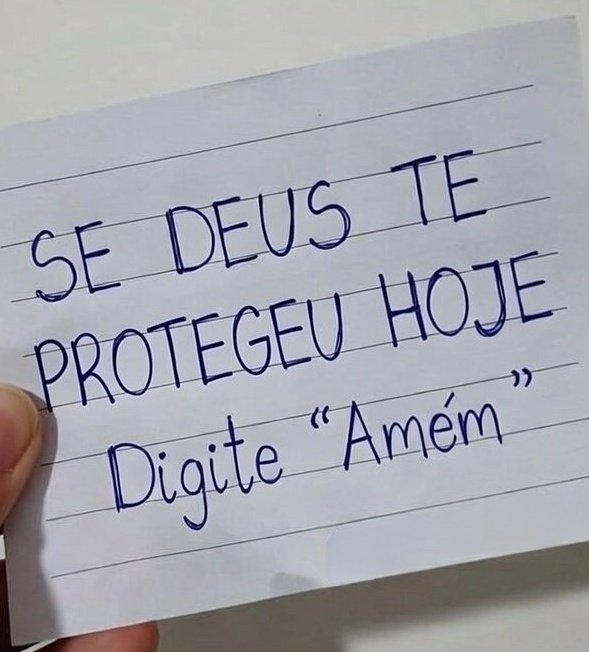 SE DEUS TE
PROTEGEU HOJE
Digite “Amém”